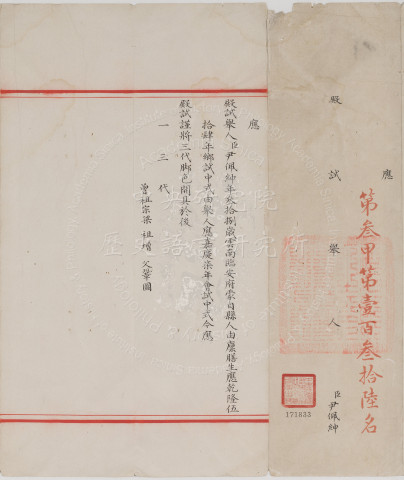 應
第叁甲第壹百叁拾陸名
殿試舉人
臣尹佩紳
171635
應
殿試舉人臣尹佩紳年拾捌歲雲南臨安府蒙自縣人由廩膳生應乾隆伍
拾肆年鄉試中式由舉人應嘉慶柒年會試中式今應
殿試謹將三代脚色開具於後
一三代
曾祖宗梁 祖增 父肇圖